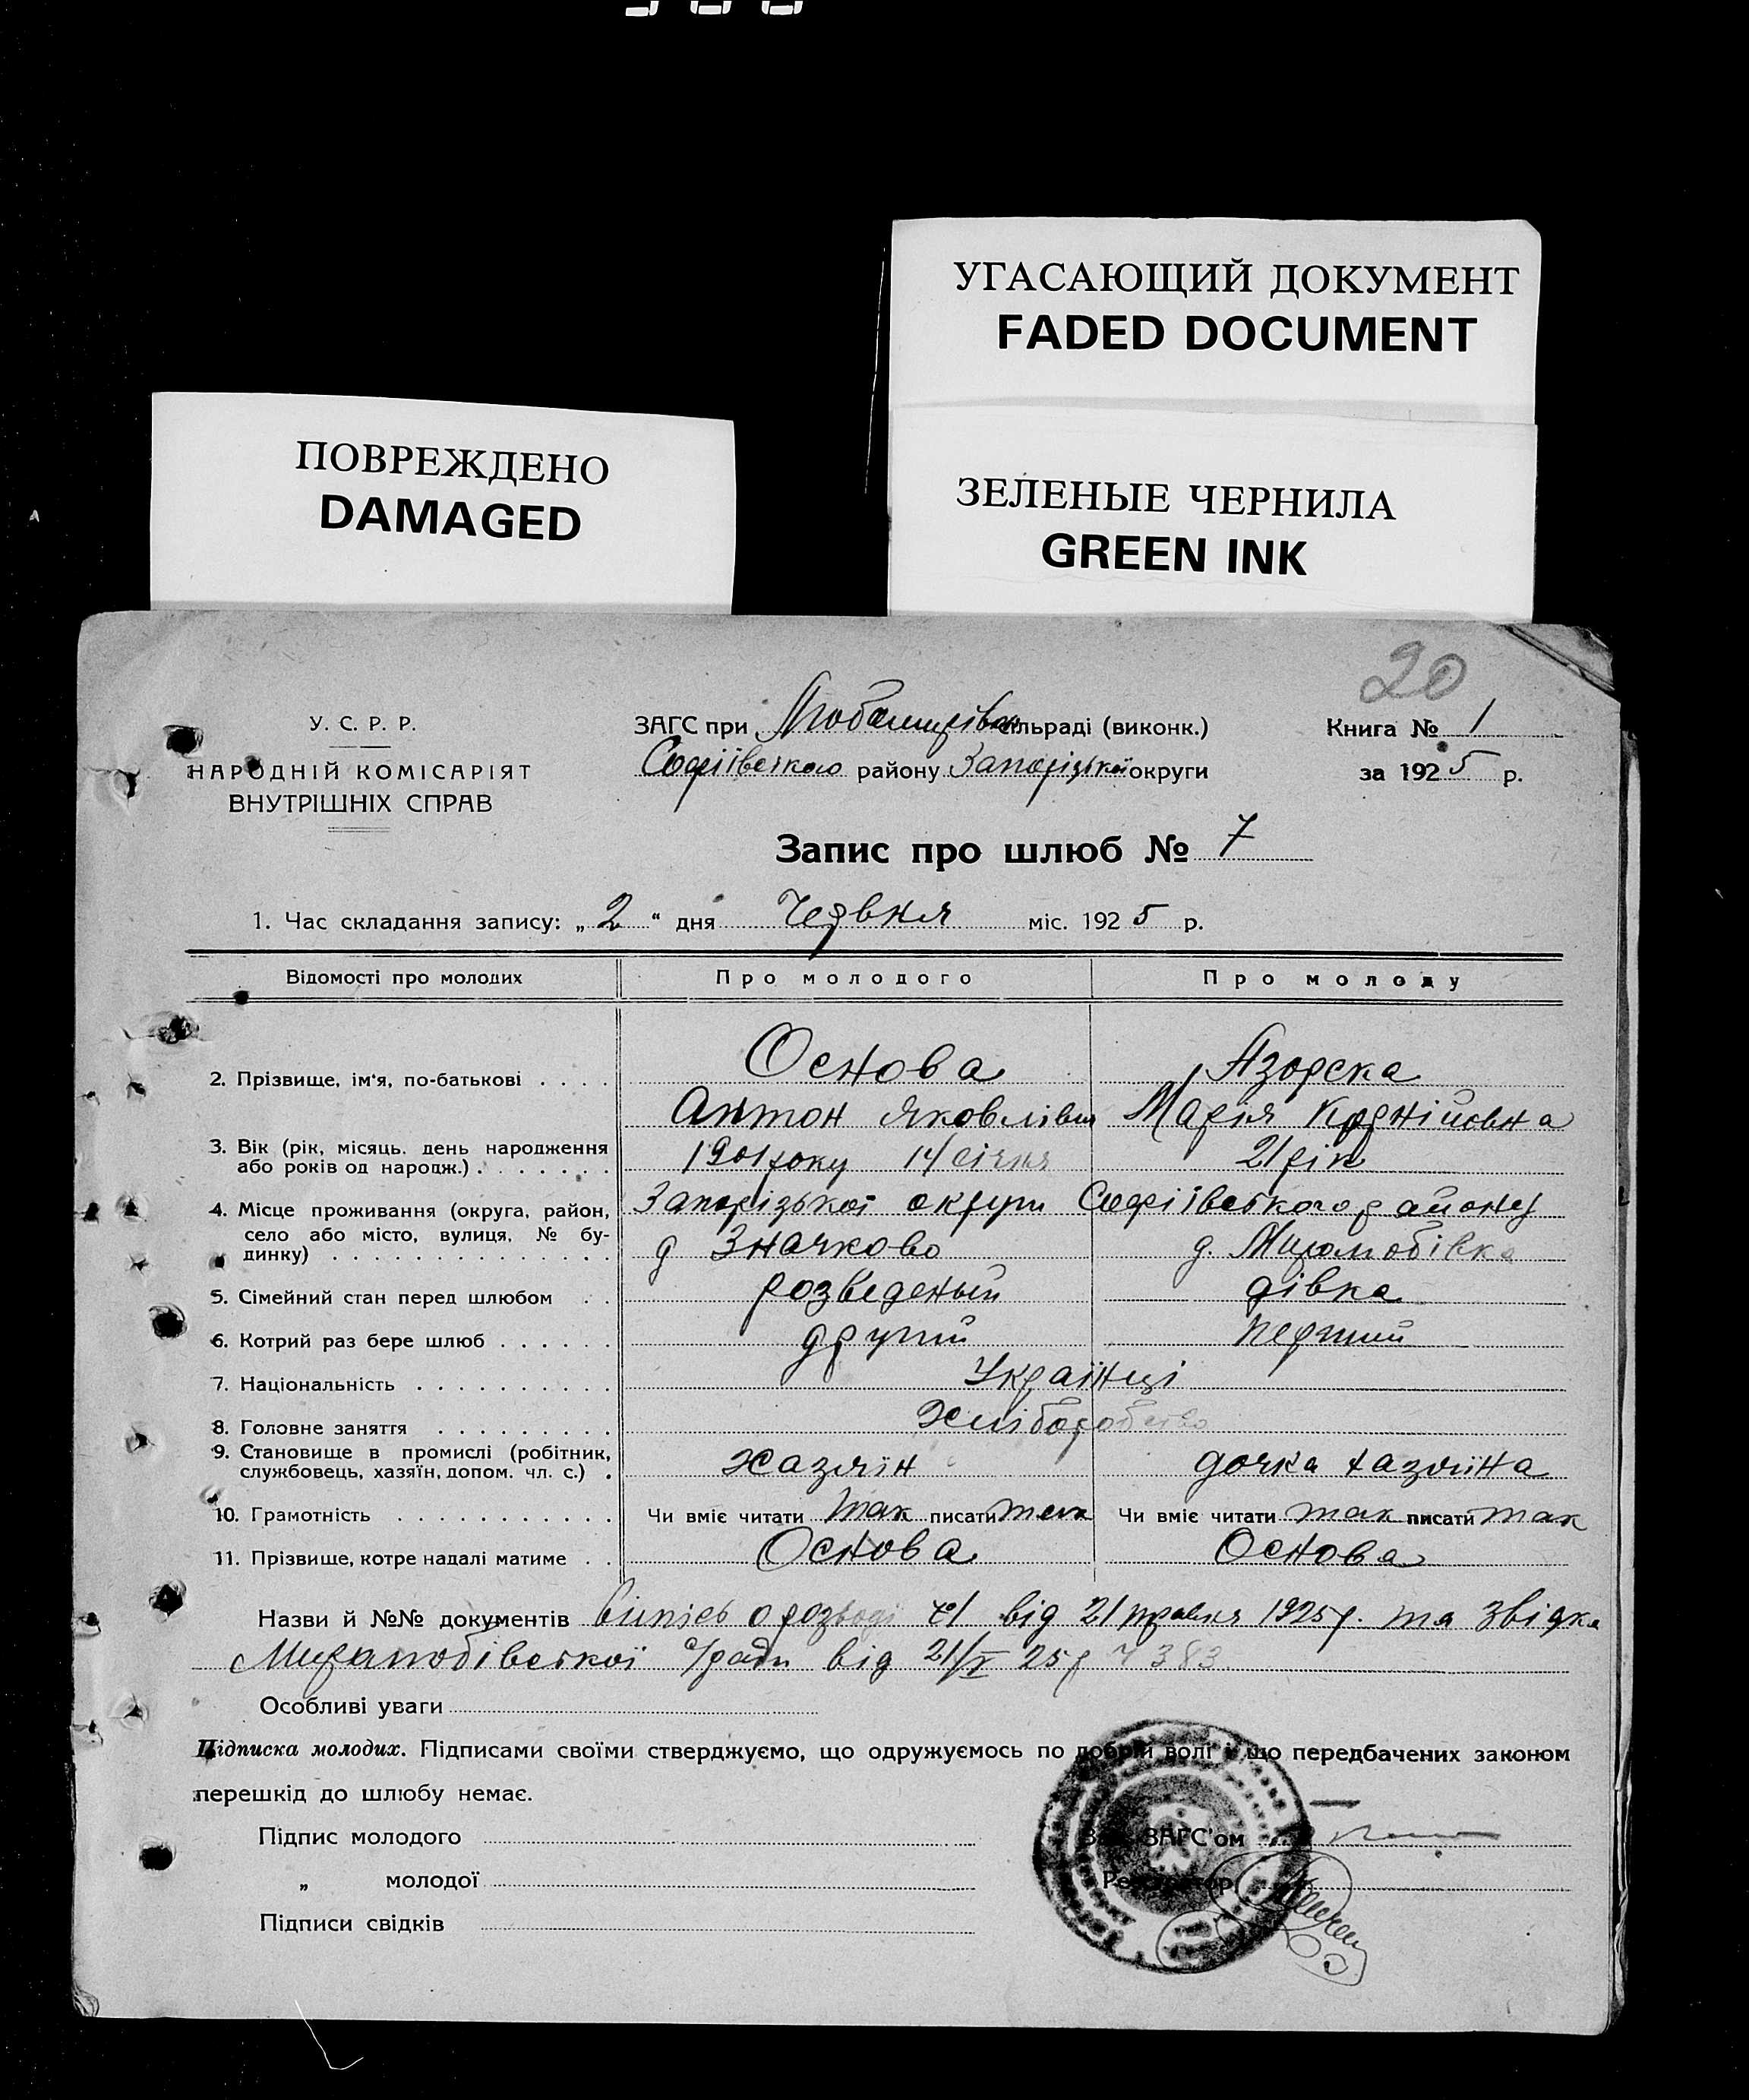 УГАСАЮЩИЙ ДОКУМЕНТ
FADED DOCUMENT
ПОВРЕЖДЕНО
DAMAGED
ЗЕЛЕНЫЕ ЧЕРНИЛА
GREEN INK
20
У. С. Р. Р.
НАРОДНІЙ КОМІСАРІЯТ
ВНУТРІШНІХ СПРАВ
ЗАГС при сільраді (виконк.)
Софіївського району Запорізької округи
Книга № 1
за 1925 р.
Запис про шлюб № 7
1. Час складання запису: „2“ дня Червня міс. 1925 р.
Відомості про молодих Про молодого Про молоду
2. Прізвище, ім'я, по-батькові . . . . Основа Язорска
Антон Яковлівич Марія Корнійовна
3. Вік (рік, місяць, день народження
або років од народж.) . . . . . . . 1901 року 14 січня 21 рік
4. Місце проживання (округа, район, Запорізької округи Софіївського району
село або місто, вулиця, № бу-
динку) . . . . . . . . . . . . . . д Значково д. Миролюбівка
5. Сімейний стан перед шлюбом . . розведеный дівка
6. Котрий раз бере шлюб . . . . . . другий перший
7. Національність . . . . . . . . . . Українці
8. Головне заняття . . . . . . . . . Хліборобство
9. Становище в промислі (робітник,
службовець, хазяїн, допом. чл. с.) . хазяїн дочка хазяїна
10. Грамотність . . . . . . . . . . . Чи вміє читати так писати так Чи вміє читати так писати так
11. Прізвище, котре надалі матиме . . Основа Основа
Назви й №№ документів випісь о розводі №1 від 21 травня 1925 р. та звідка
Миролюбівської с/ради від 21/V 25 р № 383
Особливі уваги
Підписка молодих. Підписами своїми стверджуємо, що одружуємось по добрій волі і що передбачених законом
перешкід до шлюбу немає.
Підпис молодого
„ молодої
Підписи свідків
Зав. ЗАГС'ом
Реєстратор